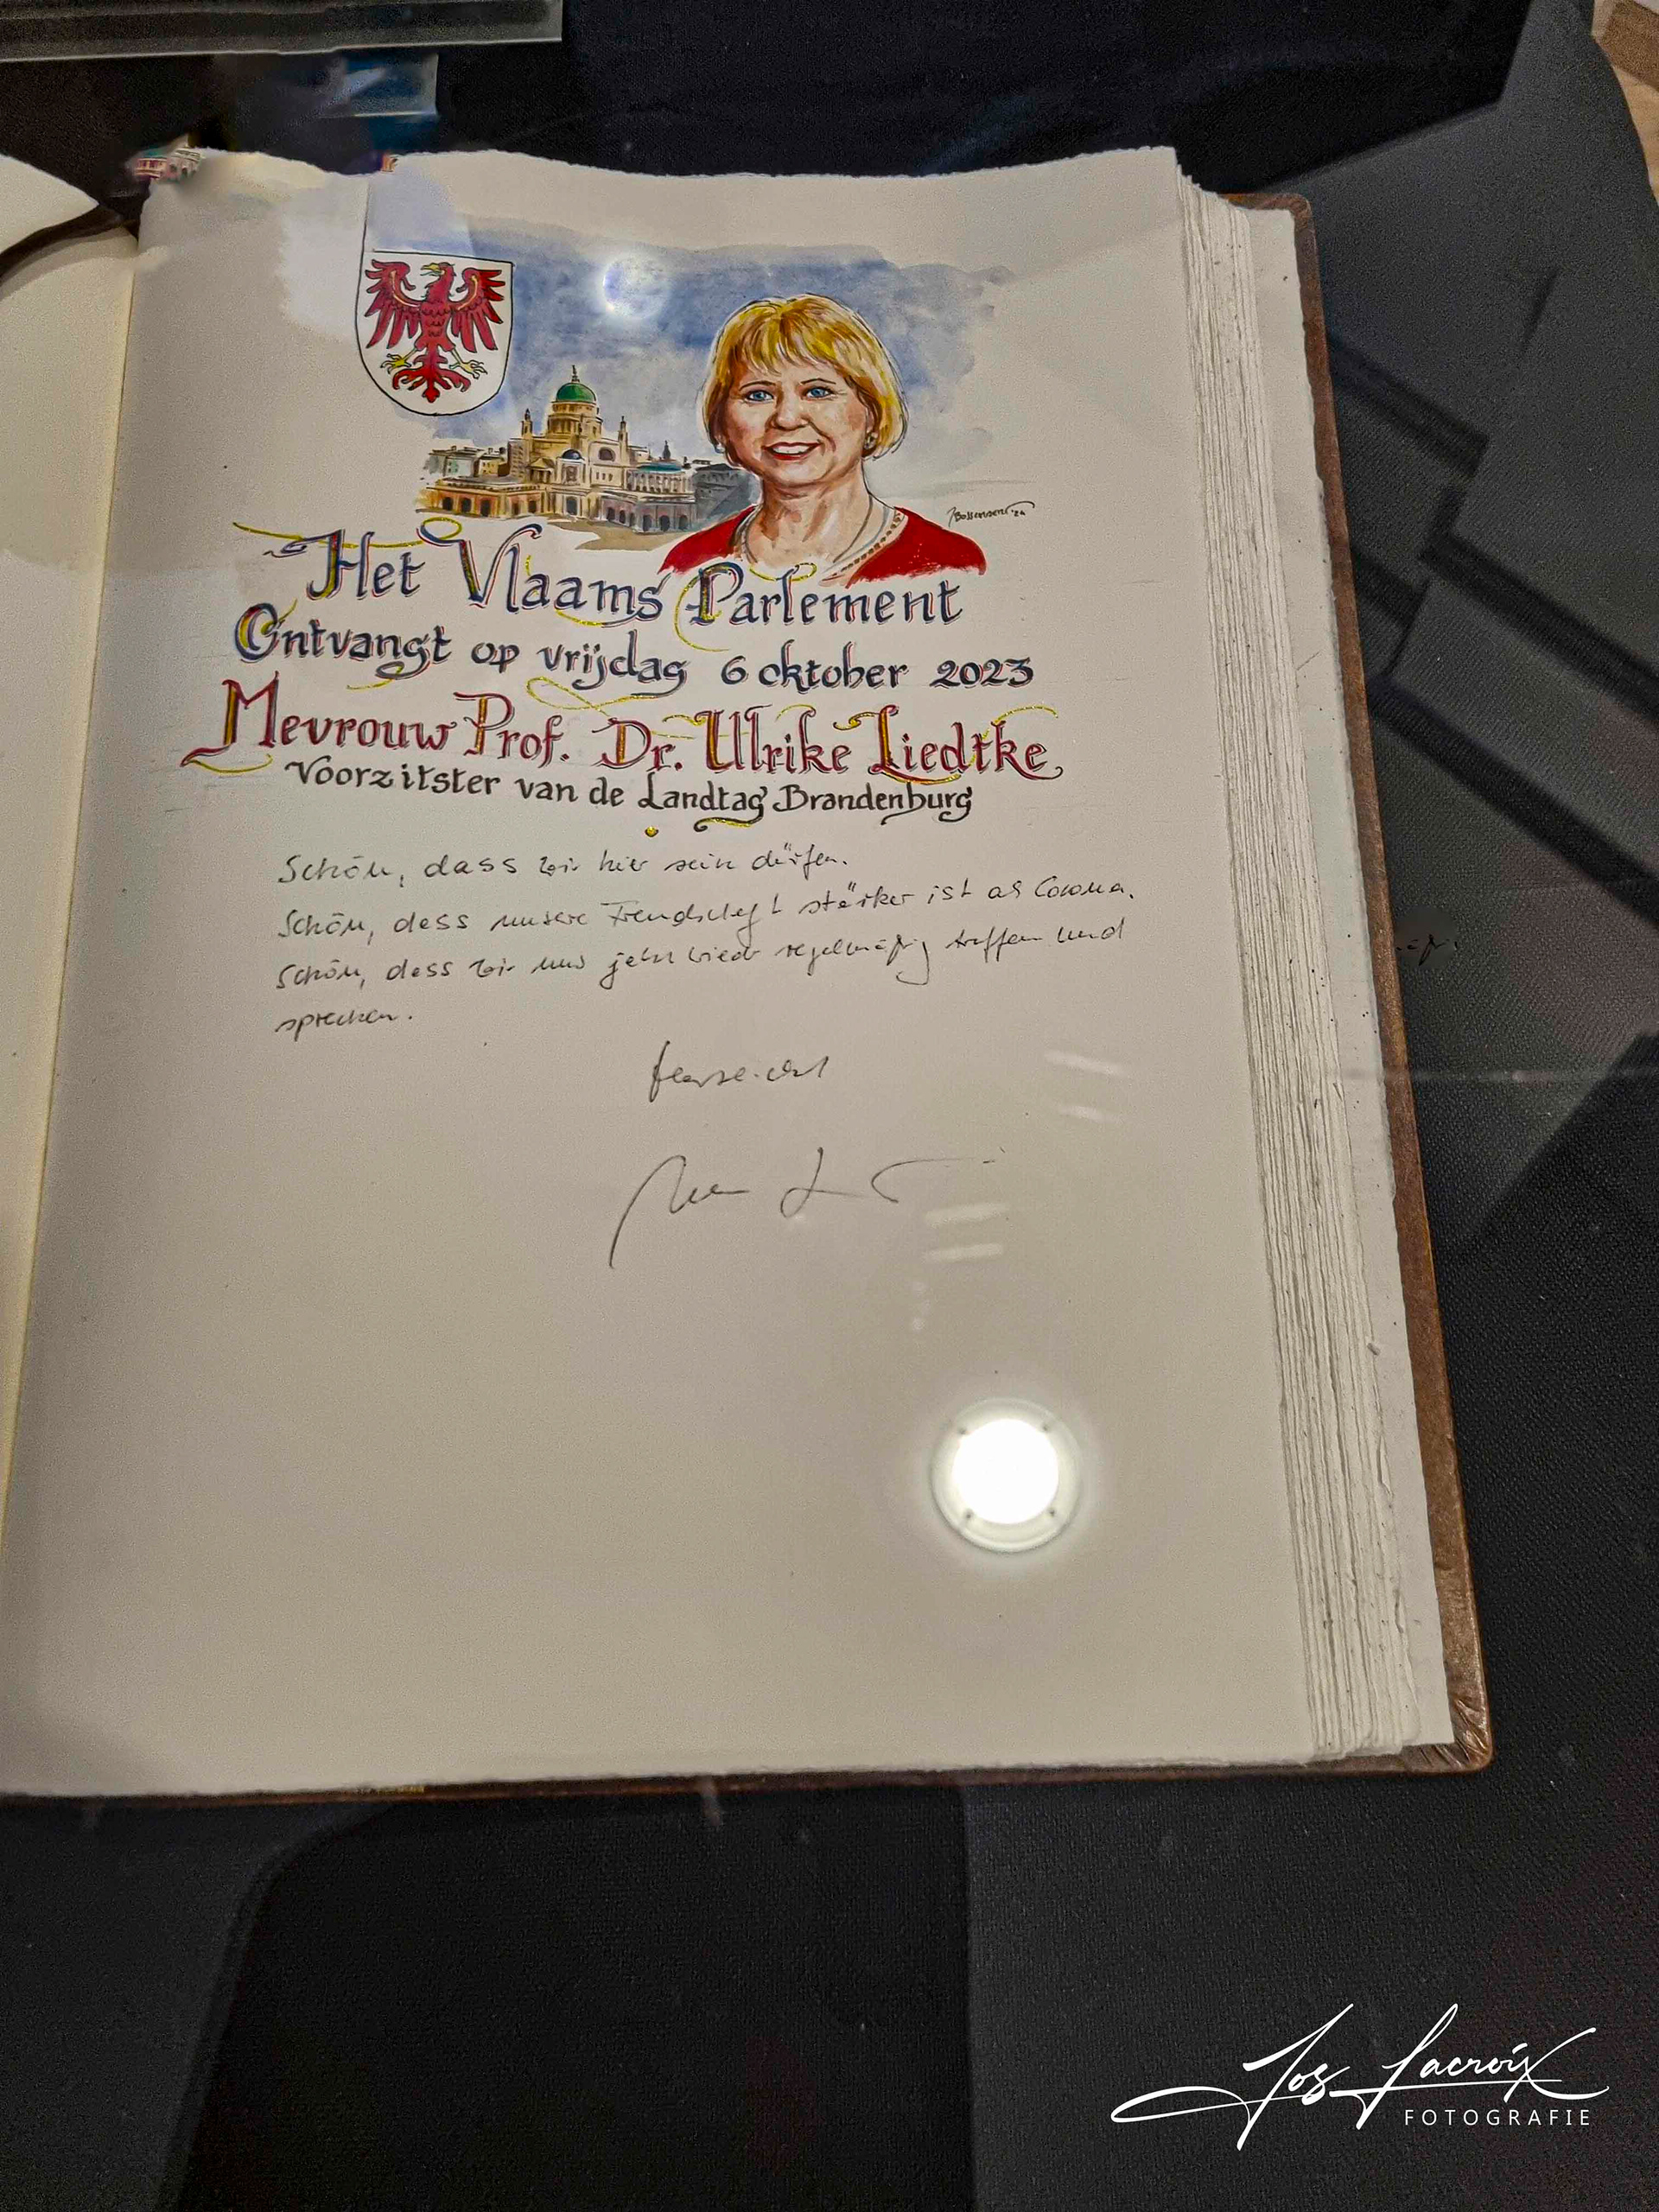 Bossenaers '24
Het Vlaams Parlement
Ontvangt op vrijdag 6 oktober 2023
Mevrouw Prof. Dr. Ulrike Liedtke
Voorzitster van de Landtag Brandenburg
Schön, dass wir hier sein dürfen.
Schön, dass unsere Freundschaft stärker ist als Corona.
Schön, dass wir uns jetzt wieder regelmäßig treffen und
sprechen.
Jos Lacroix
FOTOGRAFIE